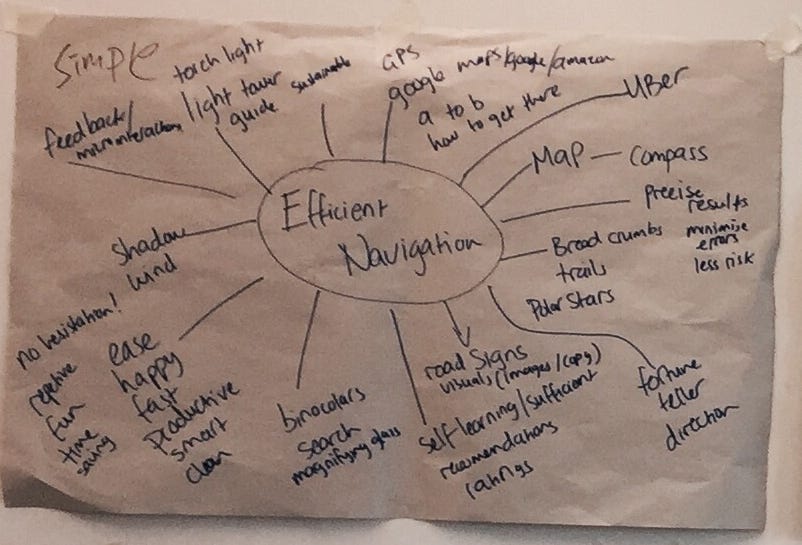 Simple
feedback/
microinteractions
torch light
light tower
guide
sustainable
GPS
google maps/google/amazon
a to b
how to get there
UBer
MAP — Compass
Precise
results
minimise
errors
less risk
Bread crumbs
trails
Polar Stars
Efficient
Navigation
Shadow
wind
no hesistation!
repetive
fun
time
saving
ease
happy
fast
Productive
smart
clean
binoculars
search
magnifying glass
road signs
visuals (images/copy)
self learning/sufficient
recomendations
ratings
fortune
teller
direction